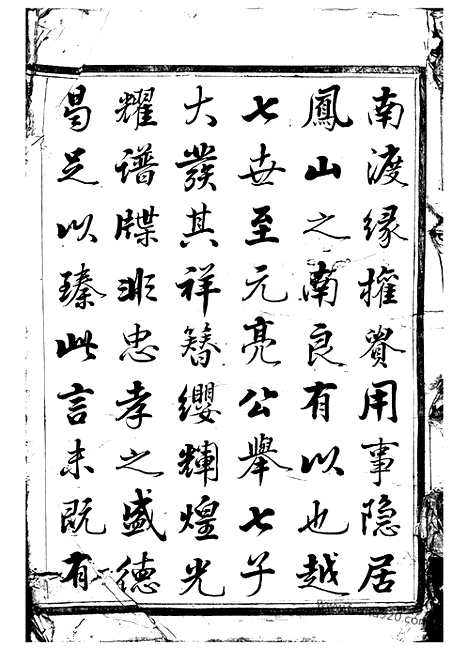 南渡缘權貴用事隐居
鳳山之南良有以也越
七世至元亮公舉七子
大發其祥簪纓輝煌光
耀谱牒非忠孝之盛德
曷足以臻此言未既有